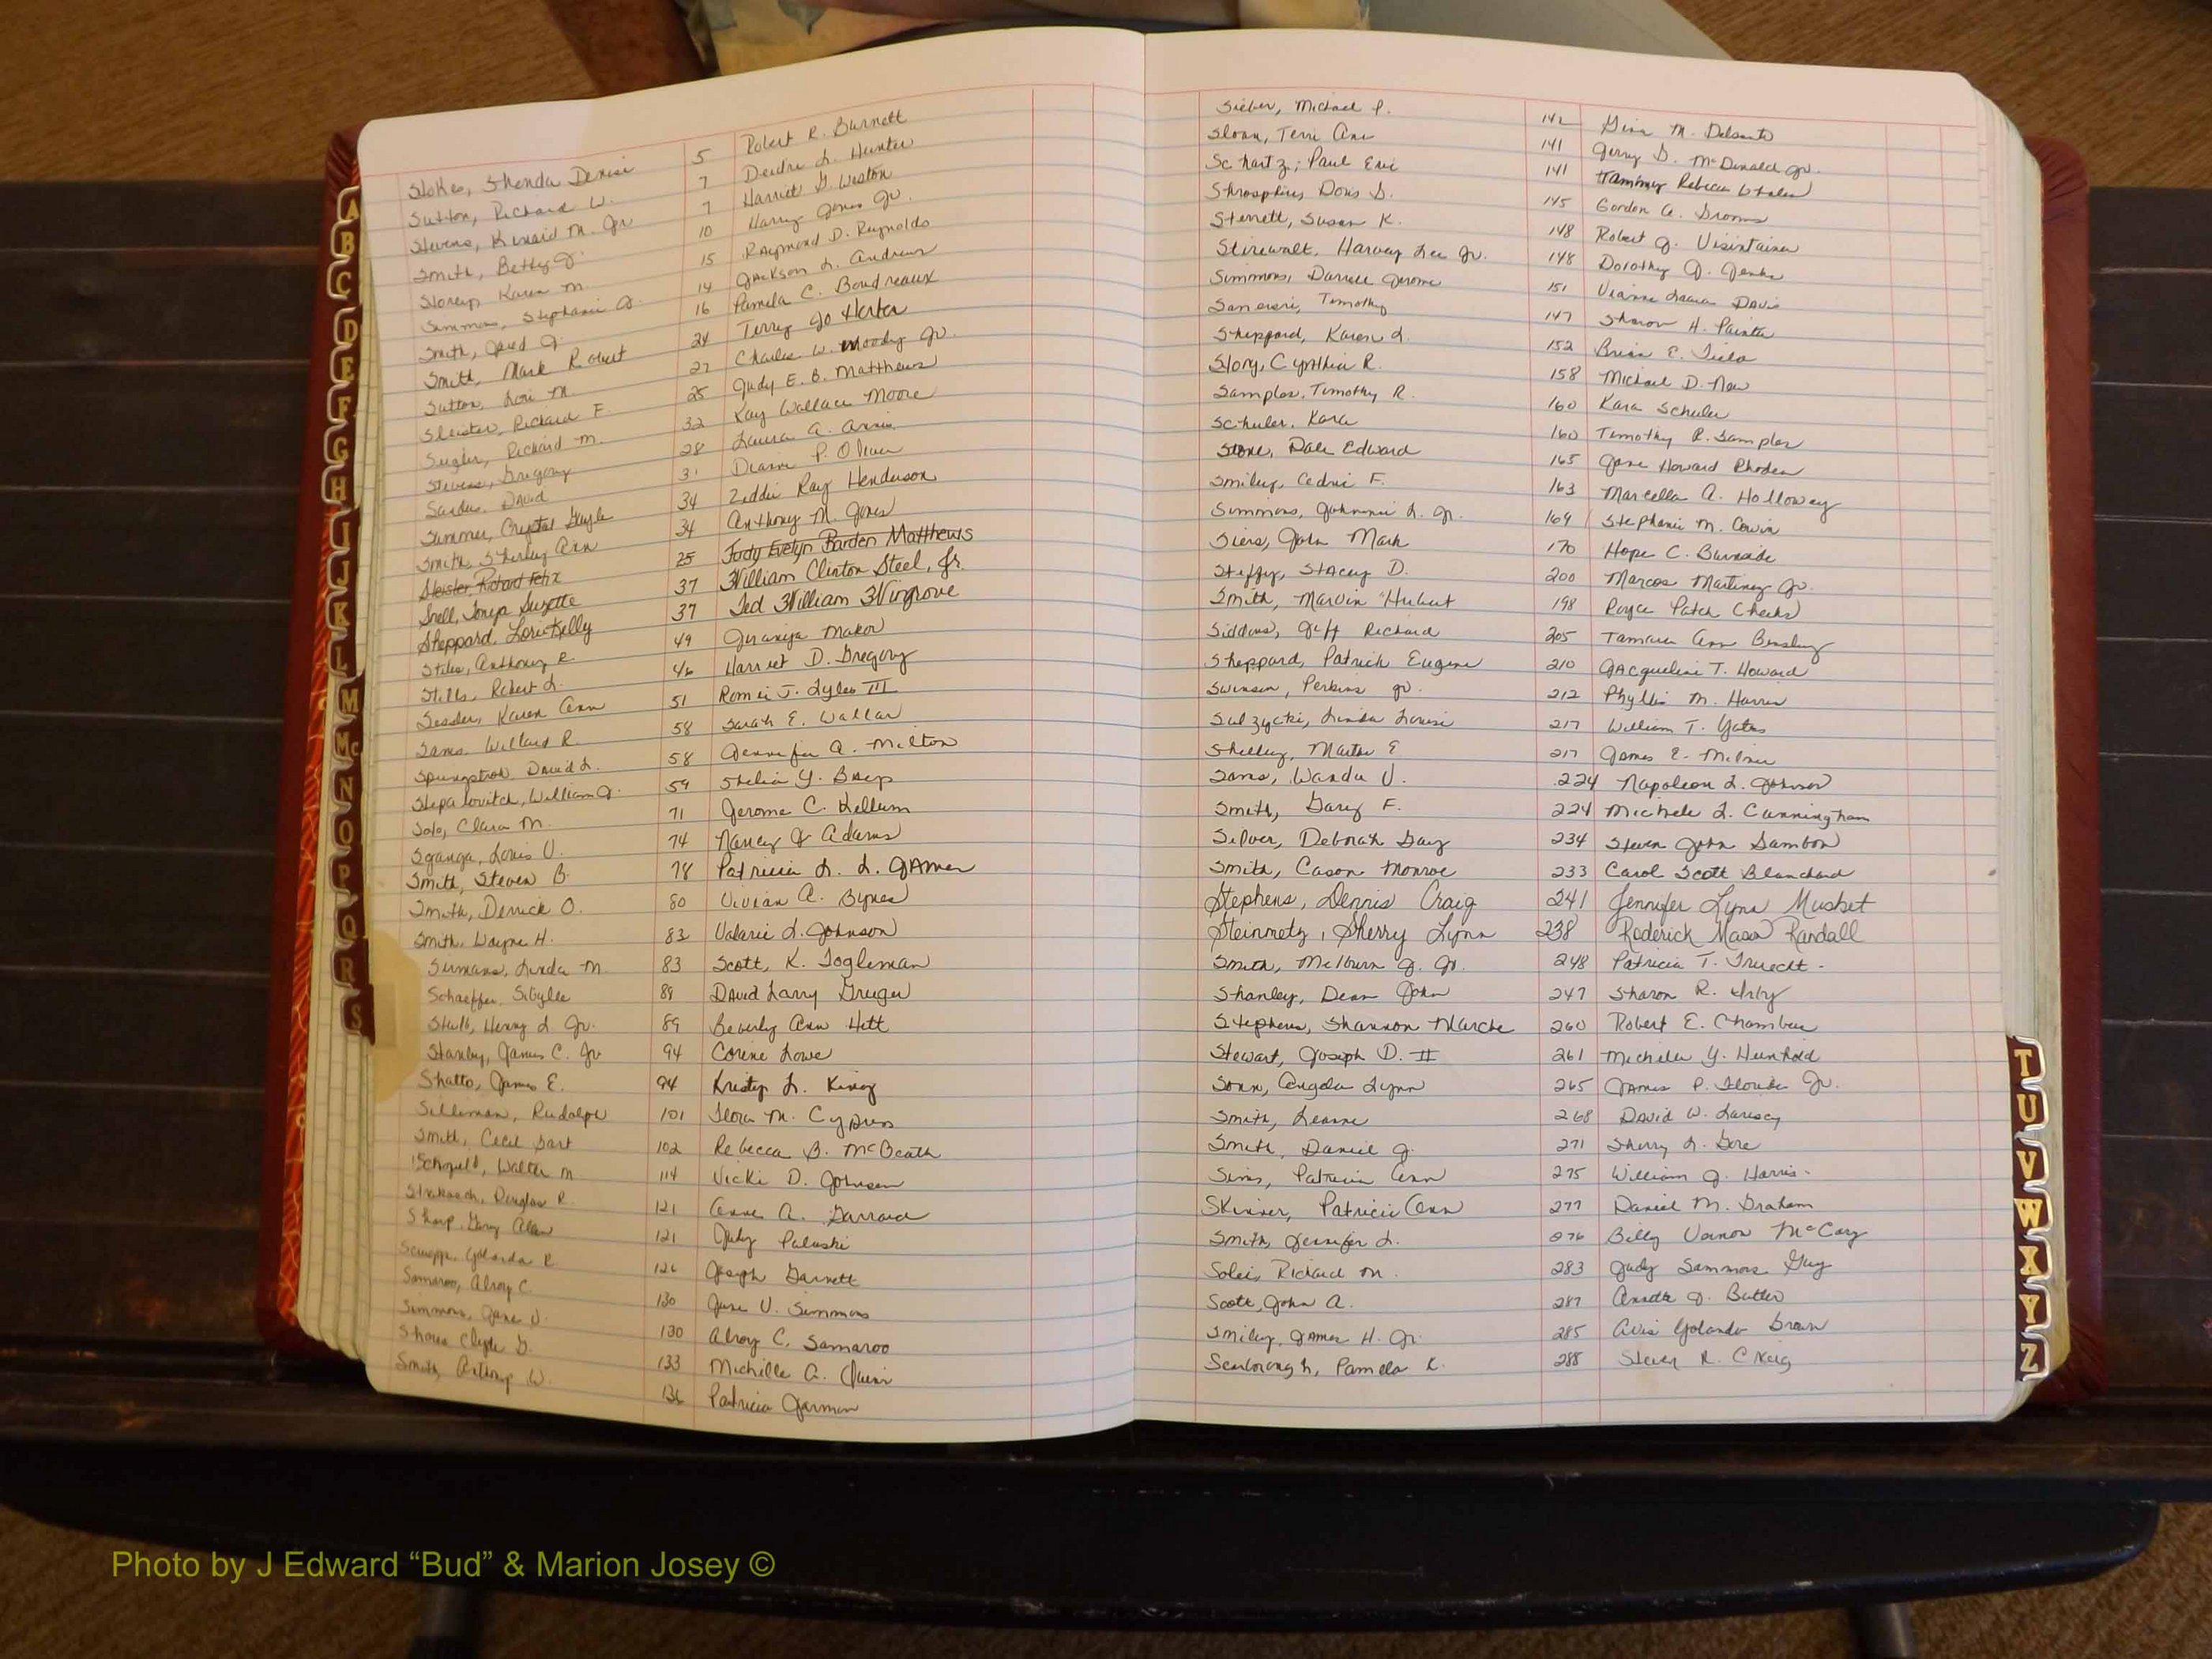 Stokes, Shenda Denise 5 Robert R. Burnett
Sutton, Richard W. 7 Deidre L. Hunter
Stevens, Kinaid M. Jr 7 Harriet G. Weston
Smith, Betty J. 10 Harry Jones Jr.
Storey, Karen M. 15 Raymond D. Reynolds
Simmons, Stephanie J. 14 Jackson L. Andrews
Smith, J. 16 Pamela C. Boudreaux
Smith, Mark Robert 24 Terry Jo Herter
Sutton, Lori M. 27 Charles W. Moody Jr.
Sleister, Richard F. 25 Judy E. B. Matthews
Richard M. 32 Kay Wallace Moore
Stevens, Gregory 28 Laura A.
David 31 Diane P. Oliver
Summer, Crystal Gayle 34 Zeddie Ray Henderson
Smith, Sherley Ann 34 Anthony M. Jones
Sleister, Richard Felix 25 Judy Evelyn Barden Matthews
Snell, Tonya Suzette 37 William Clinton Steel, Jr.
Sheppard, Lorie Kelly 37 Ted William Wingrove
Stiles, Anthony R. 49 Makor
Stills, Robert L. 46 Harriet D. Gregory
Sessler, Karen Ann 51 J. Lyles III
Sams, Willard R. 58 Sarah E. Wallar
David L. 58 Jennifer A. Milton
Stepalovitch, William J. 59 Shelia Y. Bays
Solo, Clara M. 71 Jerome C. Kellum
Sganga, Louis V. 74 Nancy J Adams
Smith, Steven B. 78 Patricia L. L.
Smith, Derrick O. 80 Vivian A. Bynes
Smith, Wayne H. 83 Valarie L. Johnson
Linda M. 83 Scott, K. Fogleman
Schaeffer, Sibylle 89 David Larry Kruger
Stull, Henry L Jr. 89 Beverly Ann Hett
Stanley, James C. Jr 94 Corine Lowe
Shatto, James E. 94 Kristy L. King
Silliman, Rudolph 101 Flora M. Cypress
Smith, Cecil Bart 102 Rebecca B. McBeath
Schofield, Walter M. 114 Vicki D. Johnson
Douglas R. 121 Anne A. Garrard
Sharp, Gary Alan 121 Judy Paluski
Yolanda R 126 Joseph Garnett
Samaroo, Alroy C. 130 June V. Simmons
Simmons, June V. 130 Alroy C. Samaroo
Shores Clyde G. 133 Michille A.
Smith, Anthony W. 136 Patricia Jarman
Sieber, Michael P. 142 Gina M. Delsanto
Sloan, Terri Ann 141 Gerry D. McDonald Jr.
Schartz, Paul Eric 141 Tammy Rebecca
Doris D. 145 Gordon A. Grooms
Sterrett, Susan K. 148 Robert J. Visintainer
Stirewalt, Harvey Lee Jr. 148 Dorothy J. Jenks
Simmons, Darrell Jerome 151 Laura Davis
Timothy 147 Sharon H. Painter
Sheppard, Karen L. 152 Brian E.
Story, Cynthia R. 158 Michael D. New
Samples, Timothy R. 160 Kara Schuler
Schuler, Kara 160 Timothy R. Samples
Stone, Dale Edward 165 Jane Howard Rhoden
Smiley, Cedric F. 163 Marcella A. Holloway
Simmons, Johnnie L. Jr. 169 Stephanie M. Cowin
Siers, John Mark 170 Hope C. Burnside
Steffy, Stacey D. 200 Marcos Martinez Jr.
Smith, Marvin Hubert 198 Royce Patch Cheeks
Siddons, Jeff Richard 205 Tamara Ann Beasley
Sheppard, Patrick Eugene 210 Jacqueline T. Howard
Swinson, Perkins Jr. 212 Phyllis M. Harris
Sulzycki, Linda Louise 217 William T. Yates
Shelley, Martha E 217 James E. Milner
Sams, Wanda V. 224 Napoleon L. Johnson
Smith, Gary F. 224 Michele L. Cunningham
Silver, Deborah Gay 234 Steven John Sambor
Smith, Cason Monroe 233 Carol Scott Blanchard
Stephens, Dennis Craig 241 Jennifer Lynn Musket
Steinmetz, Sherry Lynn 238 Roderick Mason Randall
Smith, Melburn J. Jr. 248 Patricia T. Truecht
Shanley, Dean John 247 Sharon R. Irby
Stephens, Shannon Marche 260 Robert E. Chambers
Stewart, Joseph D. II 261 Michelle Y. Heinhold
Sonn, Angela Lynn 265 James P. Florida Jr.
Smith, Leanne 268 David W. Lariscy
Smith, Daniel J. 271 Sherry L. Gore
Sims, Patricia Ann 275 William J. Harris
Skinner, Patricia Ann 277 Daniel M. Graham
Smith, Jennifer L. 276 Billy Vernon McCary
Richard M. 283 Judy Sammons Guy
Scott, John A. 287 Annette J. Butler
Smiley, James H. Jr. 285 Avis Yolanda Brown
Scarborough, Pamela K. 288 Steven R. Craig
A
B
C
D
E
F
G
H
I
J
K
L
M
Mc
N
O
P
Q
R
S
T
U
V
W
X
Y
Z
Photo by J Edward “Bud” & Marion Josey ©